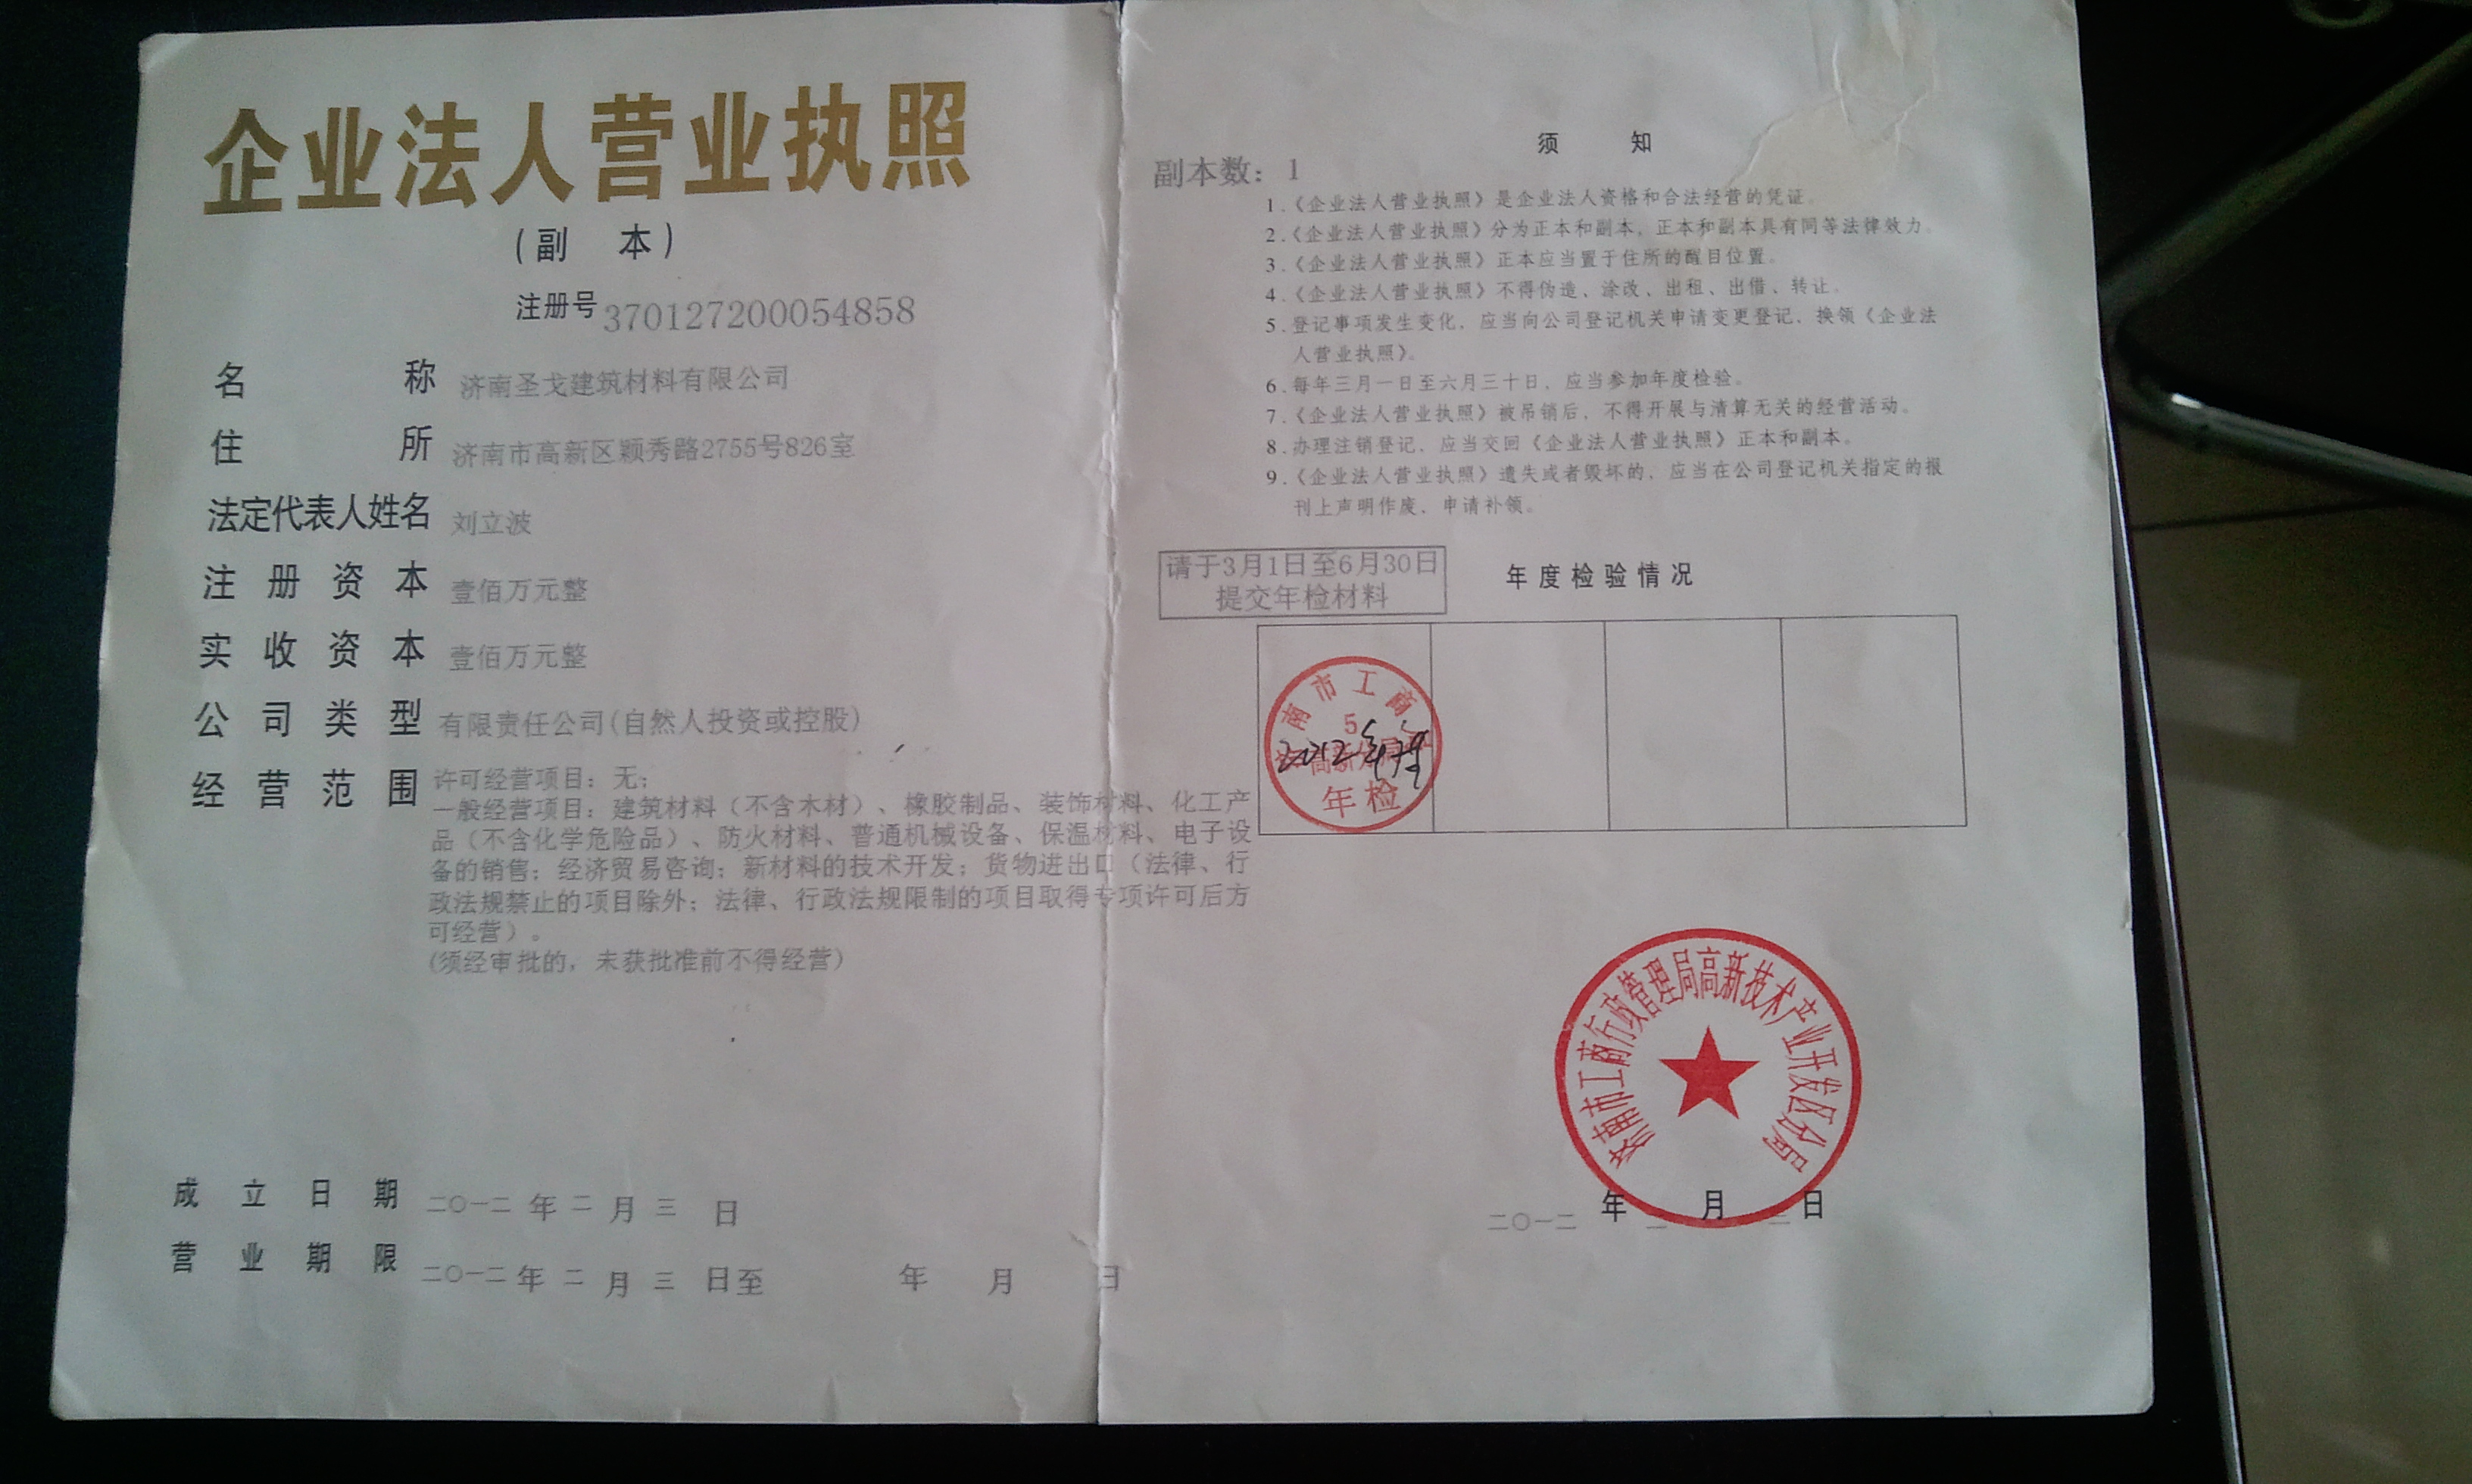 企业法人营业执照
（副 本）
注册号 370127200054858
名 称 济南圣戈建筑材料有限公司
住 所 济南市高新区颖秀路2755号826室
法定代表人姓名 刘立波
注册资本 壹佰万元整
实收资本 壹佰万元整
公司类型 有限责任公司(自然人投资或控股)
经营范围 许可经营项目：无；
一般经营项目：建筑材料（不含木材）、橡胶制品、装饰材料、化工产
品（不含化学危险品）、防火材料、普通机械设备、保温材料、电子设
备的销售；经济贸易咨询；新材料的技术开发；货物进出口（法律、行
政法规禁止的项目除外；法律、行政法规限制的项目取得专项许可后方
可经营）。
(须经审批的，未获批准前不得经营)
成立日期 二〇一二年二月三日
营业期限 二〇一二年二月三日至 年 月 日
须 知
副本数：1
1.《企业法人营业执照》是企业法人资格和合法经营的凭证。
2.《企业法人营业执照》分为正本和副本，正本和副本具有同等法律效力。
3.《企业法人营业执照》正本应当置于住所的醒目位置。
4.《企业法人营业执照》不得伪造、涂改、出租、出借、转让。
5.登记事项发生变化，应当向公司登记机关申请变更登记，换领《企业法
人营业执照》。
6.每年三月一日至六月三十日，应当参加年度检验。
7.《企业法人营业执照》被吊销后，不得开展与清算无关的经营活动。
8.办理注销登记，应当交回《企业法人营业执照》正本和副本。
9.《企业法人营业执照》遗失或者毁坏的，应当在公司登记机关指定的报
刊上声明作废，申请补领。
请于3月1日至6月30日
提交年检材料
年度检验情况
南市工商
5
2012年
年检
济南市工商行政管理局高新技术产业开发区分局
二〇一二年 月 日